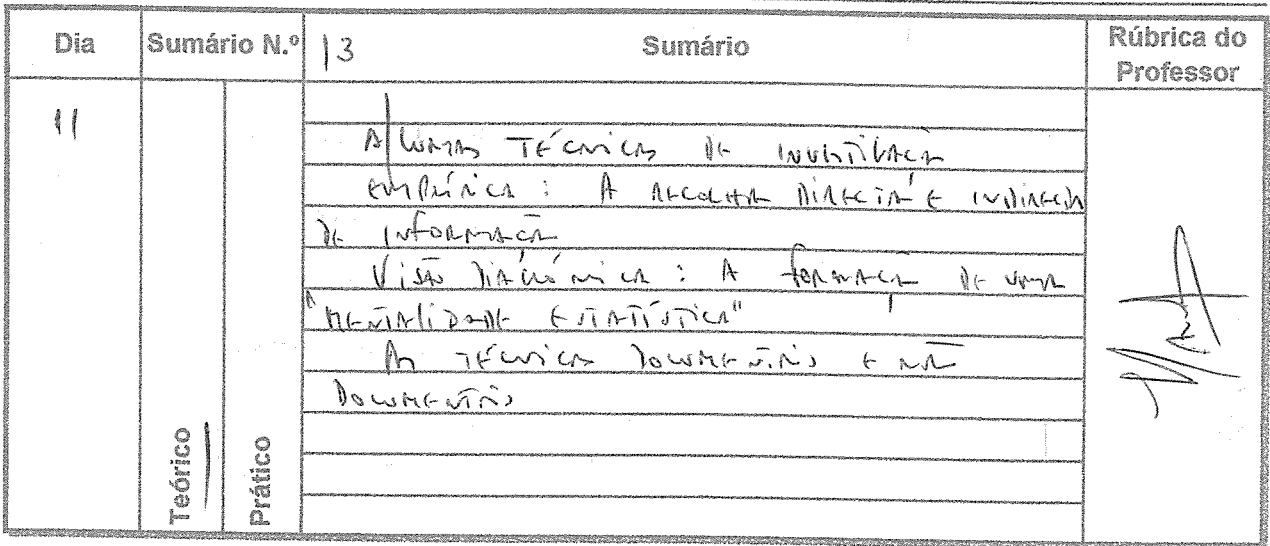 Dia Sumário N.º 13 Sumário Rúbrica do Professor
11
Algumas Técnicas de Investigação
Empírica: A recolha directa e indirecta
de informação
Visão diacrónica: A formação de uma
"mentalidade estatística"
As técnicas documentais e não
documentais
Teórico
Prático